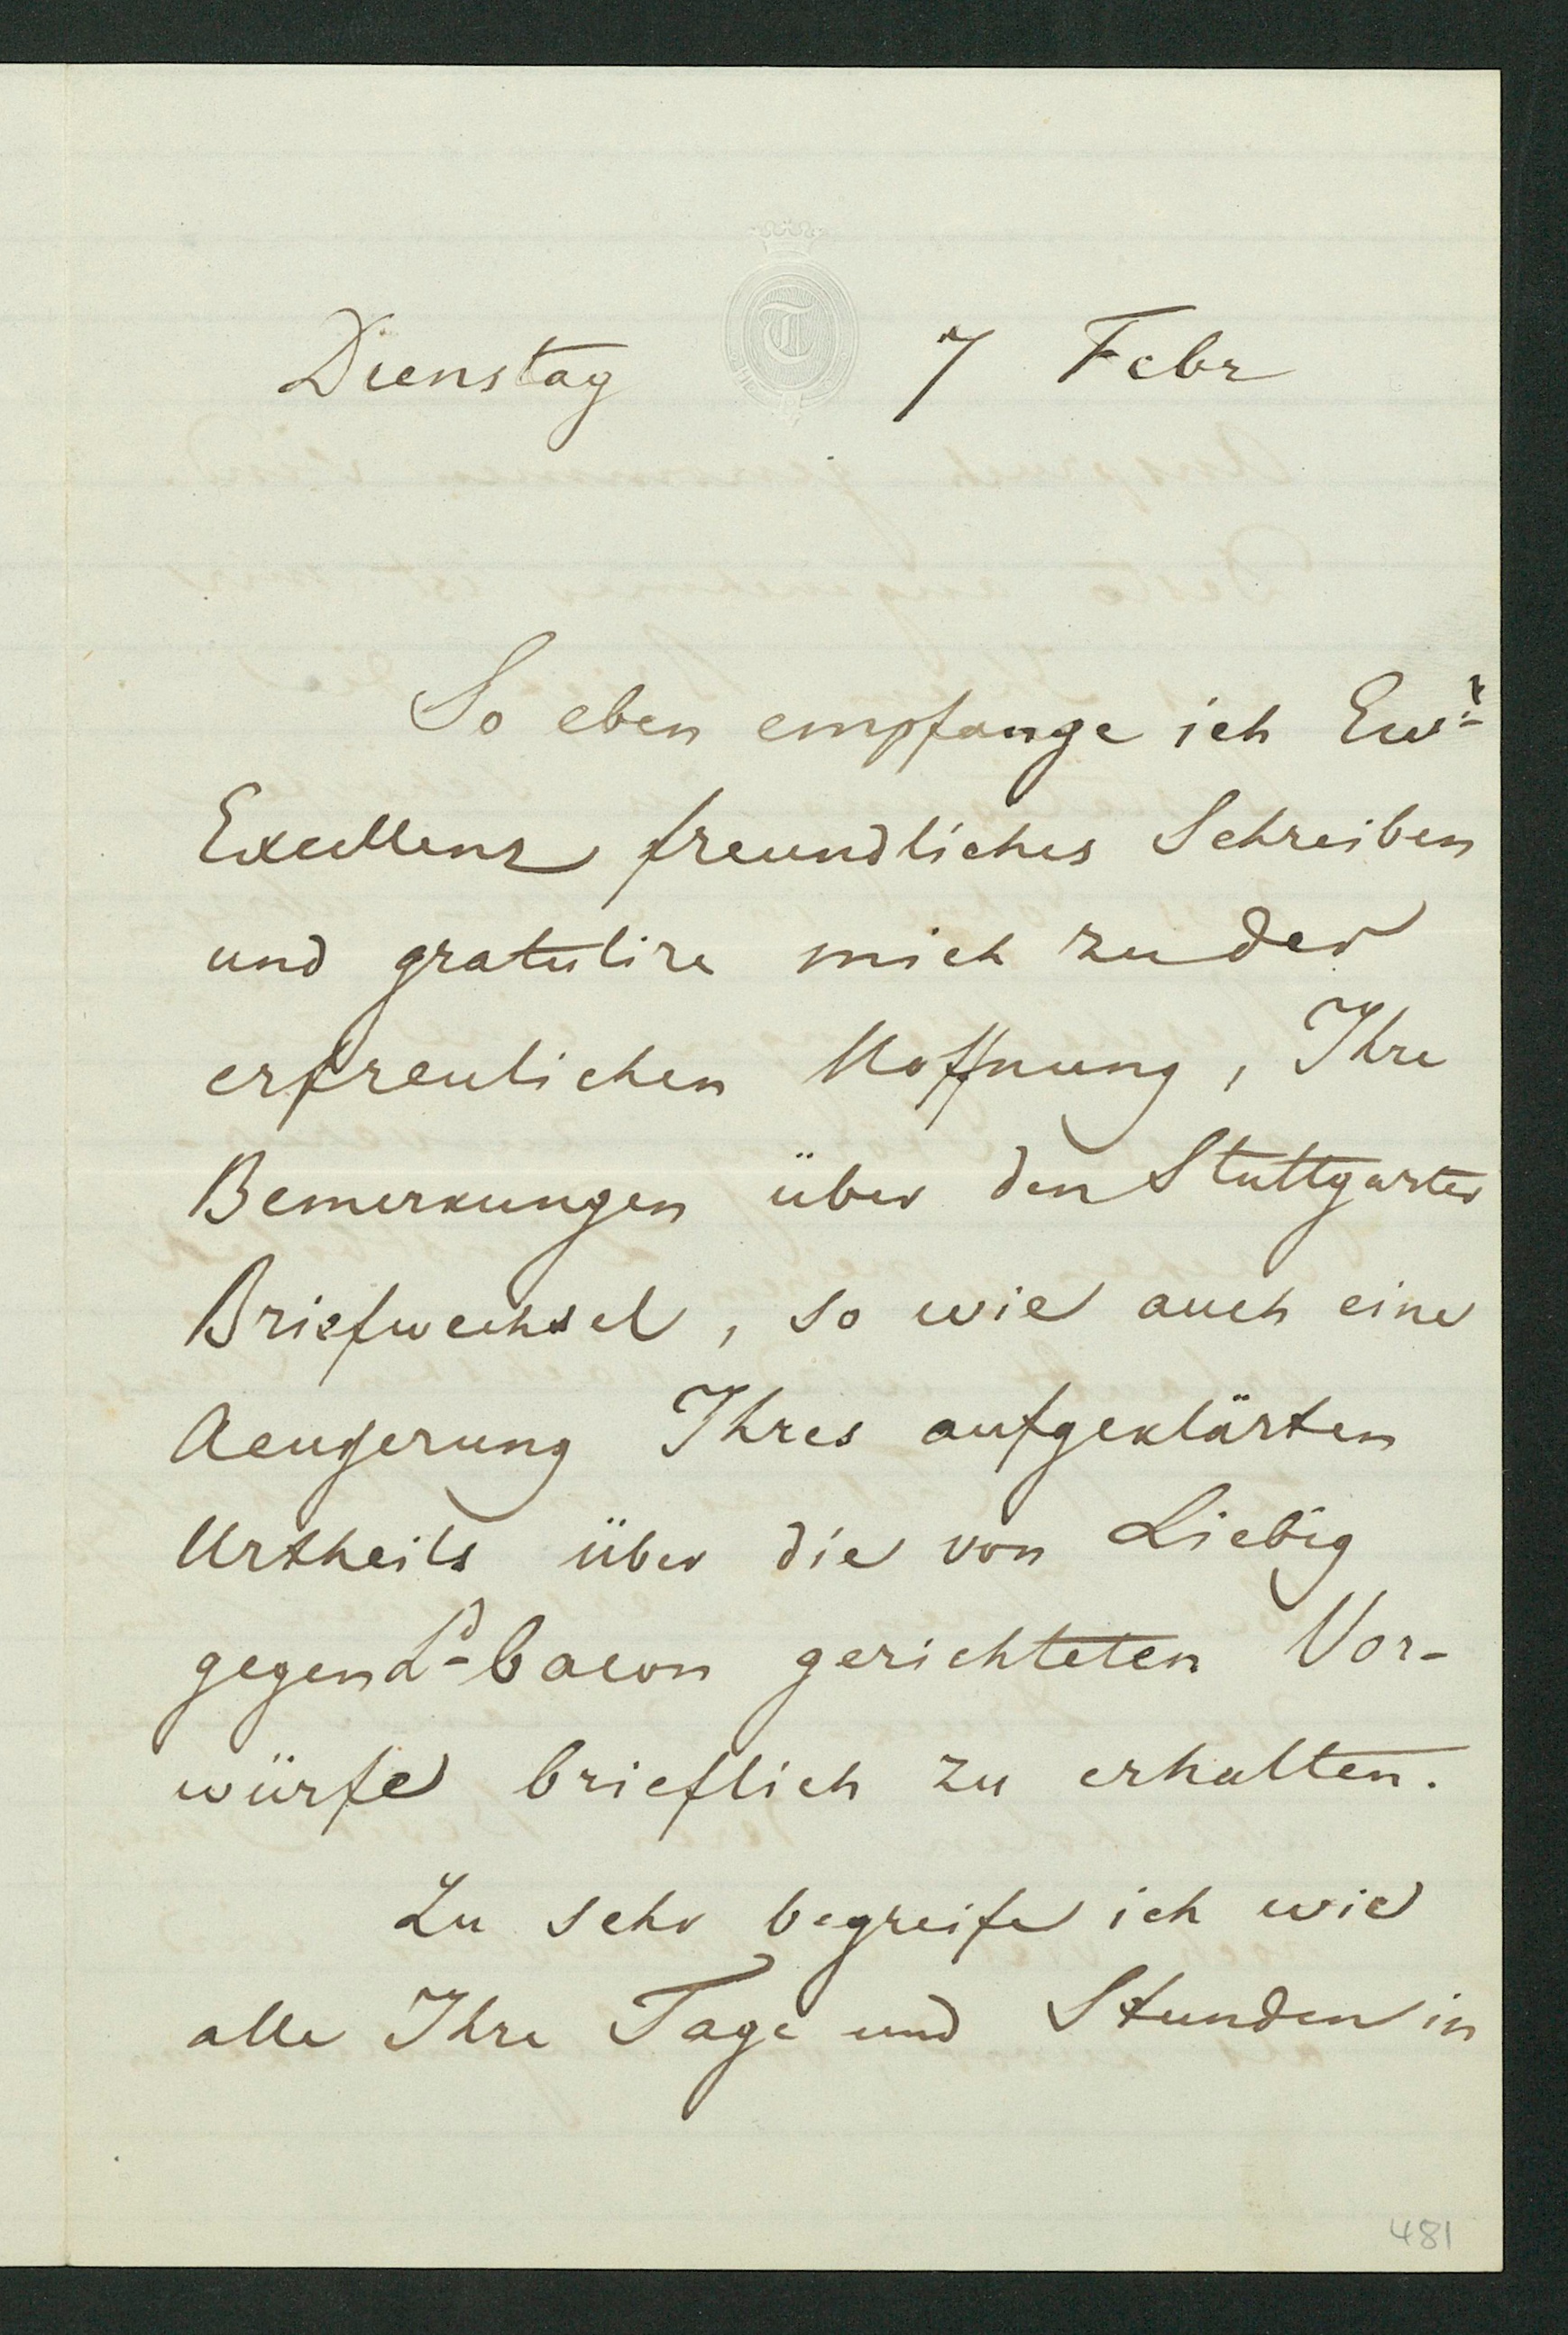 Dienstag 7 Febr
So eben empfange ich Ew.r
Excellenz freundliches Schreiben
und gratulire mich zu der
erfreulichen Hoffnung, Ihre
Bemerkungen über den Stuttgarter
Briefwechsel, so wie auch eine
Aeußerung Ihres aufgeklärten
Urtheils über die von Liebig
gegen Ld bacon gerichteten Vor-
würfe brieflich zu erhalten.
Zu sehr begreife ich wie
alle Ihre Tage und Stunden in
481